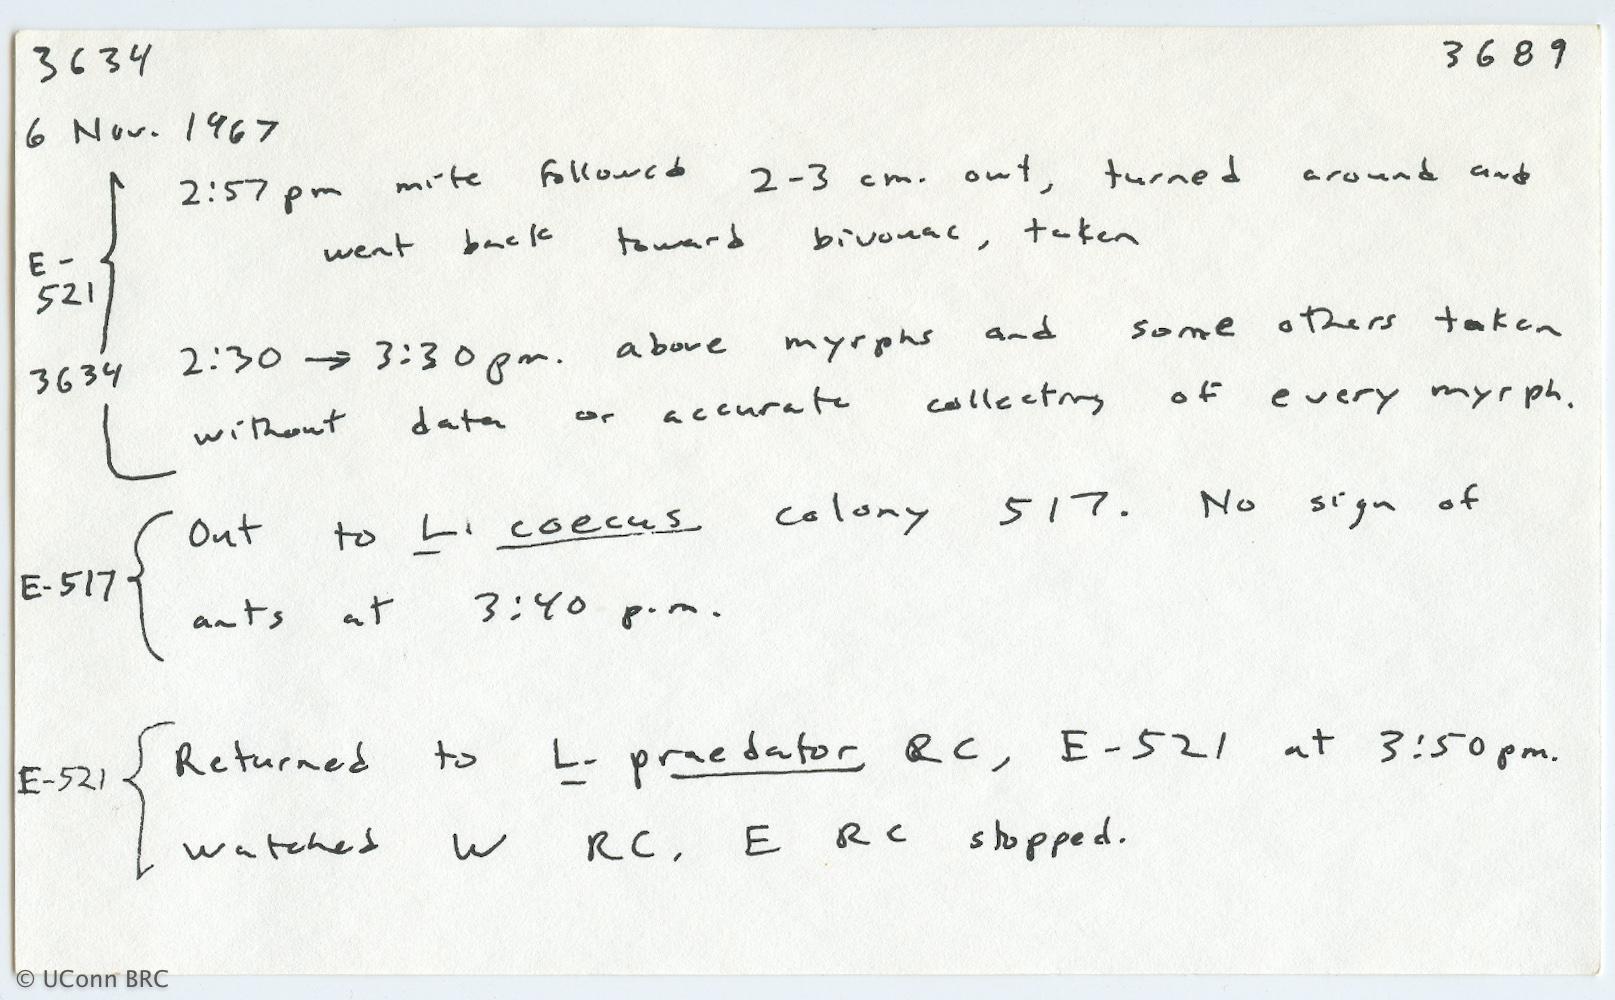 3634 3689
6 Nov. 1967
2:57 pm mite followed 2-3 cm. out, turned around and
went back toward bivouac, taken
E-
521
2:30 → 3:30 pm. above myrphs and some others taken
3634
without data or accurate collecting of every myrph.
Out to L. coecus colony 517. No sign of
E-517
ants at 3:40 p.m.
Returned to L. praedator RC, E-521 at 3:50 pm.
E-521
watched W RC, E RC stopped.
© UConn BRC